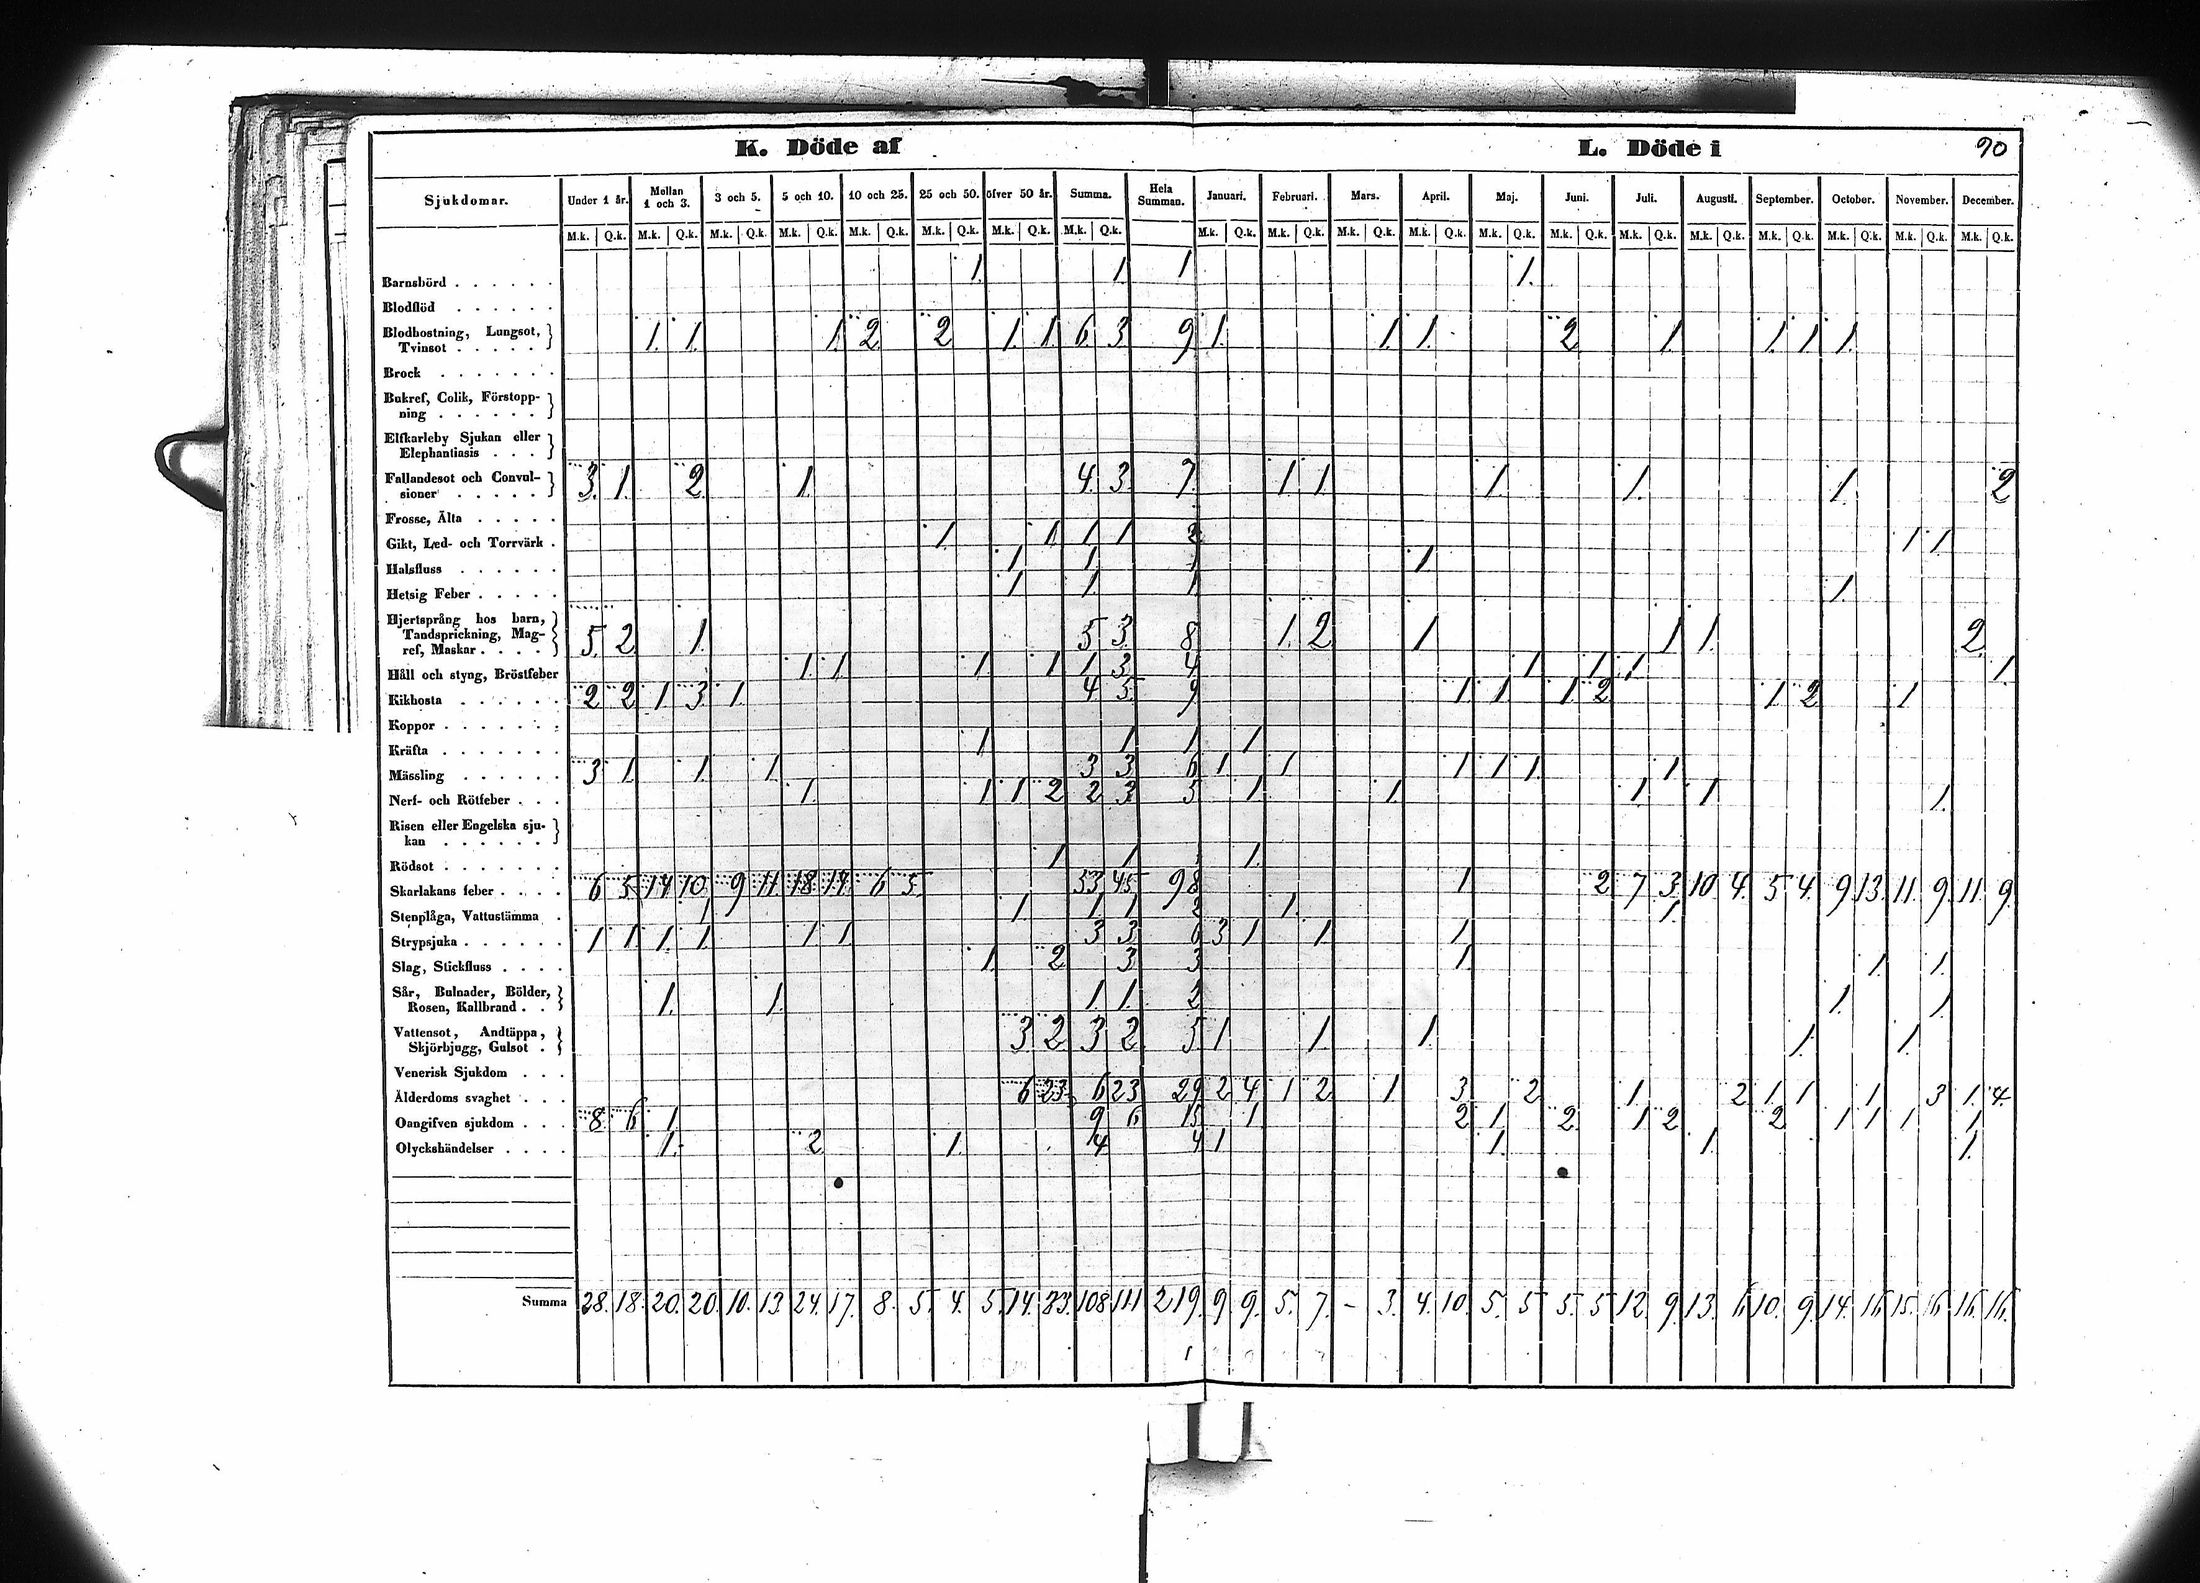 K. Döde af L. Döde i 90
Sjukdomar. Under 1 år. Mellan 1 och 3. 3 och 5. 5 och 10. 10 och 25. 25 och 50. öfver 50 år. Summa. Hela Summan. Januari. Februari. Mars. April. Maj. Juni. Juli. Augusti. September. October. November. December.
M.k. Q.k. M.k. Q.k. M.k. Q.k. M.k. Q.k. M.k. Q.k. M.k. Q.k. M.k. Q.k. M.k. Q.k. M.k. Q.k. M.k. Q.k. M.k. Q.k. M.k. Q.k. M.k. Q.k. M.k. Q.k. M.k. Q.k. M.k. Q.k. M.k. Q.k. M.k. Q.k. M.k. Q.k. M.k. Q.k.
Barnsbörd 1. 1. 1 1.
Blodflöd
Blodhostning, Lungsot,
Tvinsot 1. 1. 1. 2 2 1. 1. 6. 3 9 1. 1. 1. 2 1. 1. 1. 1.
Brock
Bukref, Colik, Förstopp-
ning
Elfkarleby Sjukan eller
Elephantiasis
Fallandesot och Convul-
sioner 3. 1. 2 1. 4. 3. 7. 1. 1. 1. 1. 1. 2
Frosse, Älta
Gikt, Led- och Torrvärk 1. 1. 1 1 2 1 1
Halsfluss 1 1. 1 1
Hetsig Feber 1 1. 1 1.
Hjertsprång hos barn,
Tandsprickning, Mag-
ref, Maskar 5. 2 1. 5 3. 8 1. 2 1 1 1. 2.
Håll och styng, Bröstfeber 1. 1 1 1 1 3. 4 1 1. 1 1.
Kikhosta 2 2 1 3 1. 4 5. 9 1. 1 1. 2 1. 2 1
Koppor
Kräfta 1 1 1 1
Mässling 3 1. 1. 1. 3 3 6 1 1 1 1 1. 1
Nerf- och Rötfeber 1. 1 1 2 2 3 5 1 1. 1 1 1.
Risen eller Engelska sju-
kan
Rödsot 1 1 1.
Skarlakans feber 6 5 14 10 9 11 18 14 6 5 53 45 98 1 2 7 3 10 4. 5 4. 9 13. 11. 9. 11. 9.
Stenplåga, Vattustämma 1 1. 1 1 2 1. 1.
Strypsjuka 1 1 1. 1 1 1 3 3 6 3 1 1 1
Slag, Stickfluss 1. 2 3 3 1. 1. 1.
Sår, Bulnader, Bölder,
Rosen, Kallbrand 1. 1. 1. 1. 2 1. 1.
Vattensot, Andtäppa,
Skjörbjugg, Gulsot 3 2 3 2 5 1 1. 1 1. 1.
Venerisk Sjukdom
Ålderdoms svaghet 6 23 6 23 29 2 4 1 2 1 3 2 1 2 1. 1 1 3 1. 4.
Oangifven sjukdom 8. 6 1 9 6 15 1 2 1. 2 1 2 2 1 1 1 1
Olyckshändelser 1. 2 1. 4 4 1 1. 1. 1.
Summa 28. 18. 20. 20. 10. 13 24. 17. 8. 5. 4. 5. 14. 33. 108 111 219. 9 9. 5. 7. – 3. 4. 10. 5. 5 5. 5 12. 9. 13. 6 10. 9. 14. 16 15. 16 16. 16.